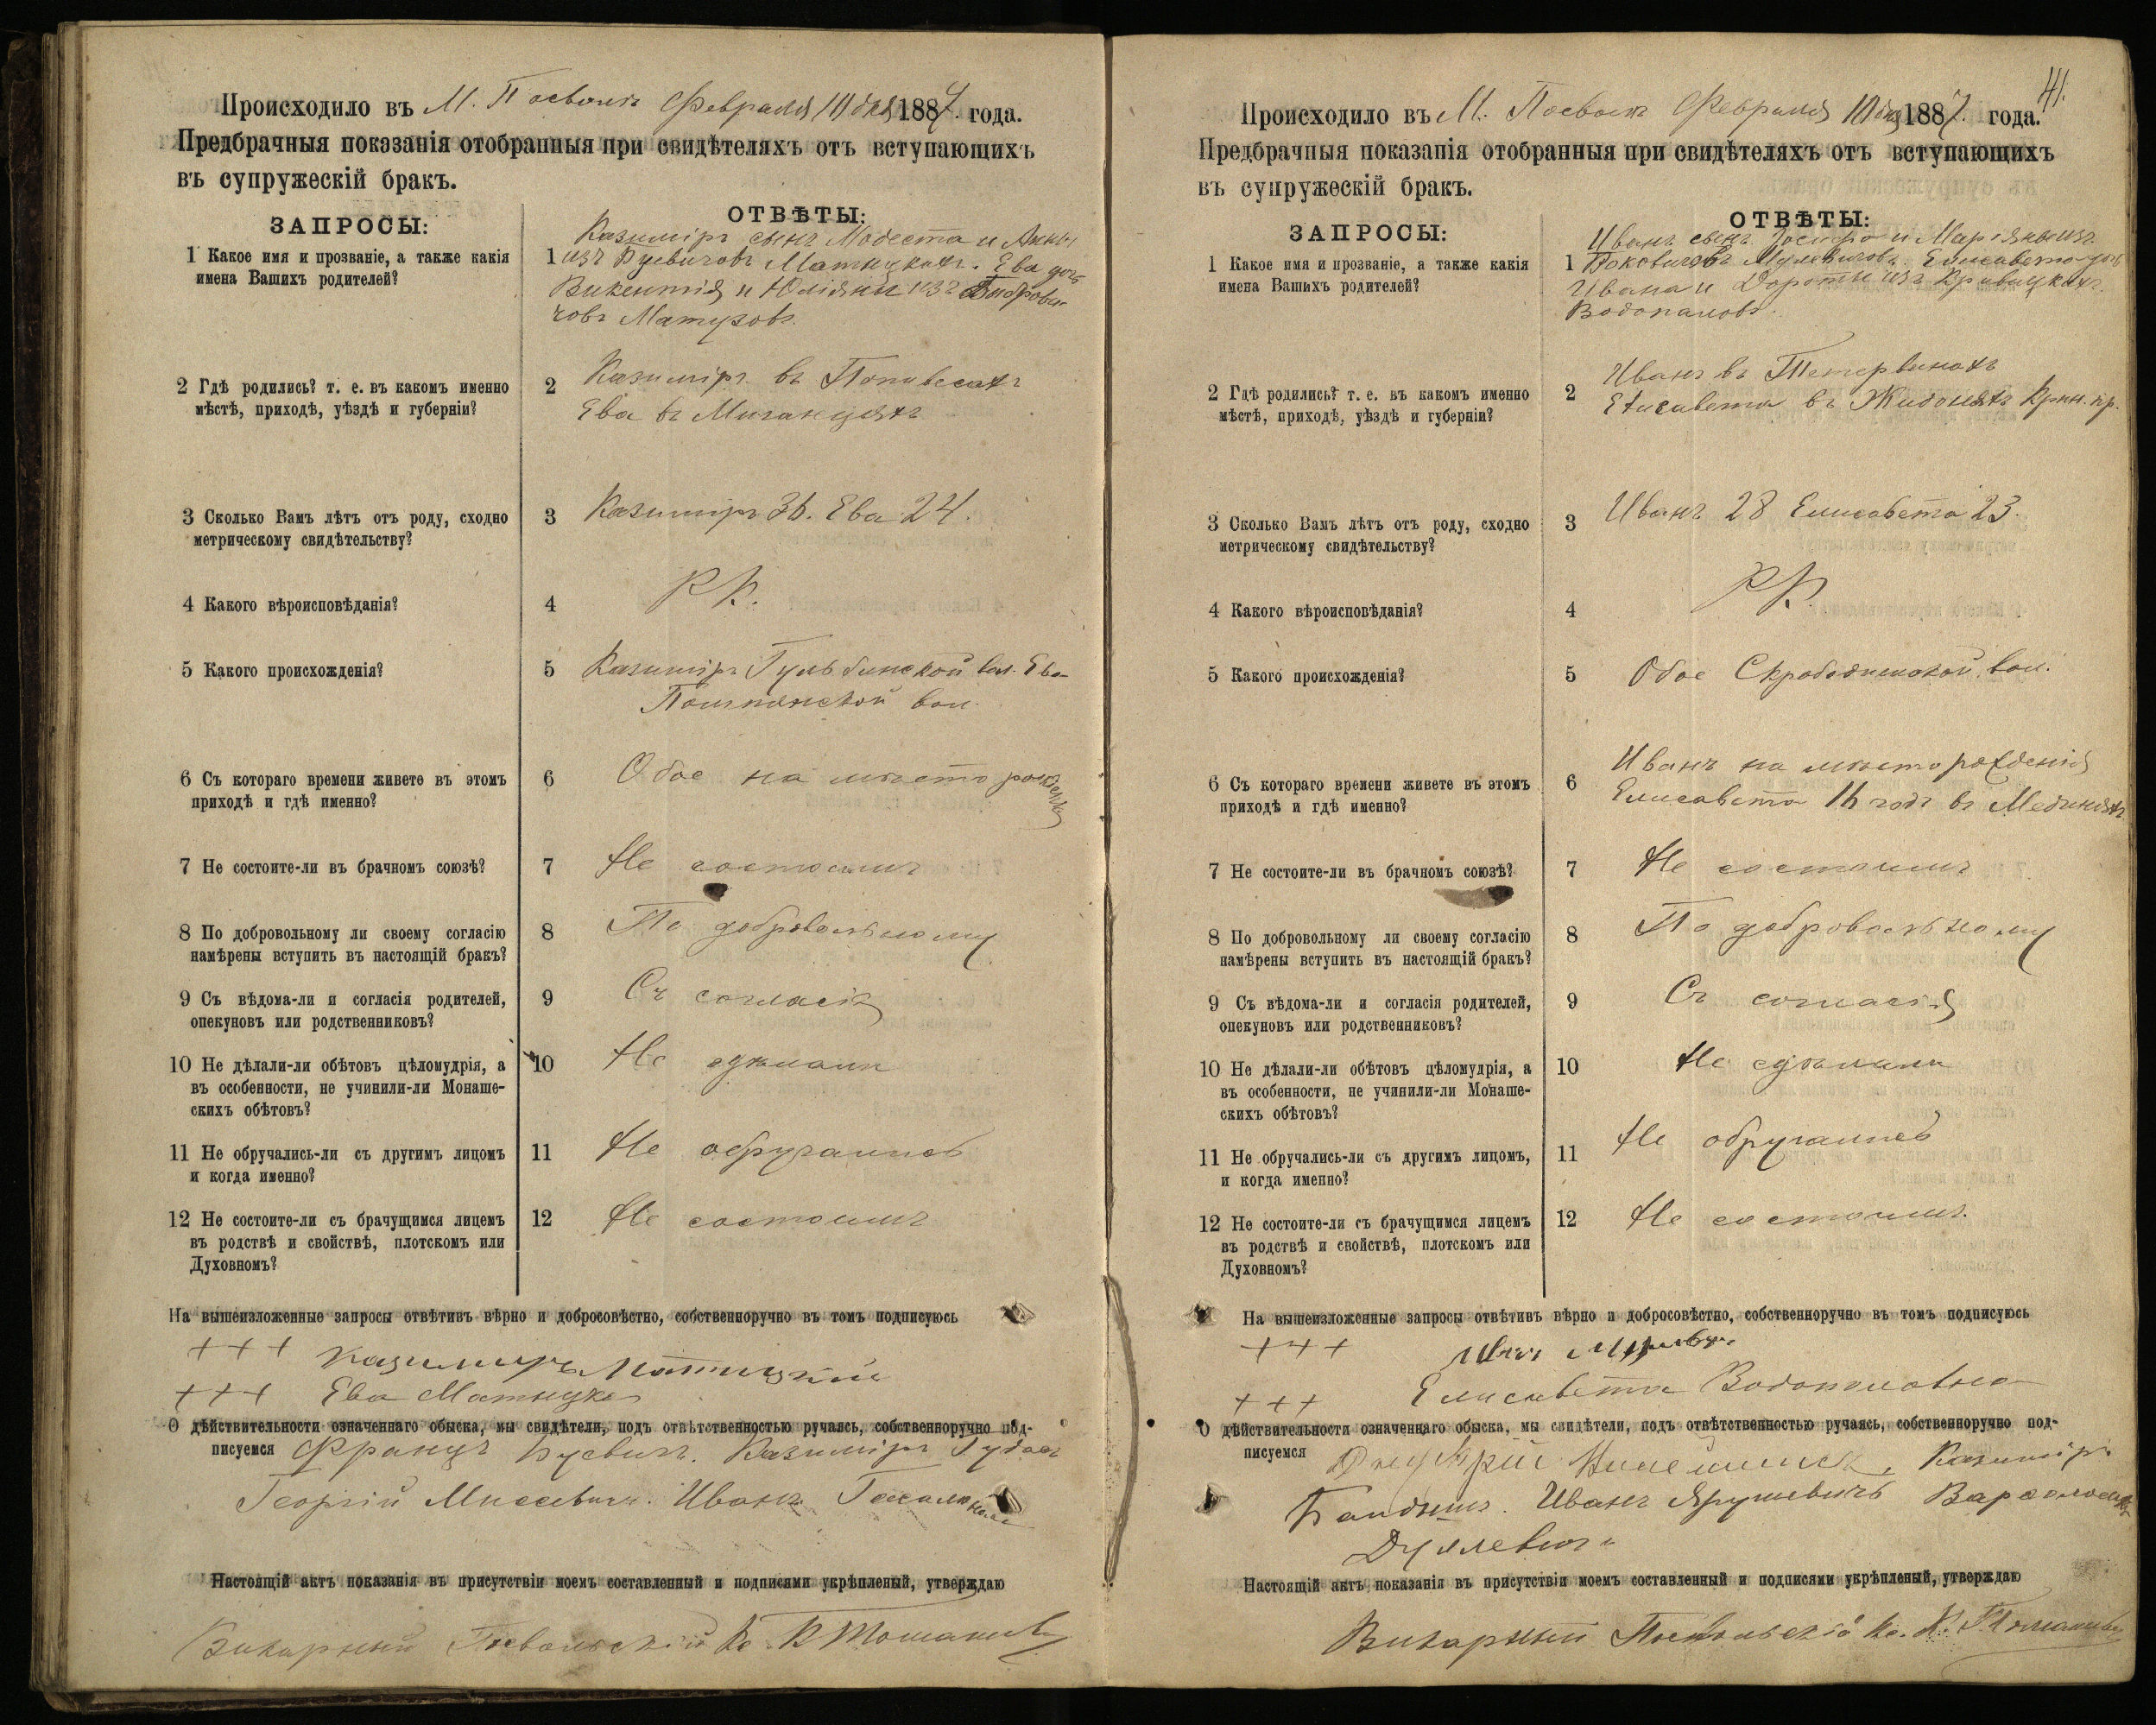 Происходило въ М. Посволъ Февраля 10 дня 1887. года.
Предбрачныя показанія отобранныя при свидѣтеляхъ отъ вступающихъ
въ супружескій бракъ.
ЗАПРОСЫ:
ОТВѢТЫ:
1 Какое имя и прозваніе, а также какія
имена Вашихъ родителей?
1 Казиміръ сынъ Модеста и Анны
изъ Буевичовъ Матыцкихъ. Ева дочь
Викентія и Юліяны изъ
Матузовъ.
2 Гдѣ родились? т. е. въ какомъ именно
мѣстѣ, приходѣ, уѣздѣ и губерніи?
2 Казиміръ въ
Ева въ
3 Сколько Вамъ лѣтъ отъ роду, сходно
метрическому свидѣтельству?
3 Казиміръ 36. Ева 24.
4 Какого вѣроисповѣданія?
4 Р К.
5 Какого происхожденія?
5 Казиміръ Гульбинской вол. Ева
вол.
6 Съ котораго времени живете въ этомъ
приходѣ и гдѣ именно?
6 Обое на мѣсто рожденія
7 Не состоите-ли въ брачномъ союзѣ?
7 Не состоимъ
8 По добровольному ли своему согласію
намѣрены вступить въ настоящій бракъ?
8 По добровольному
9 Съ вѣдома-ли и согласія родителей,
опекуновъ или родственниковъ?
9 Съ согласія
10 Не дѣлали-ли обѣтовъ цѣломудрія, а
въ особенности, не учинили-ли Монаше-
скихъ обѣтовъ?
10 Не сдѣлали
11 Не обручались-ли съ другимъ лицомъ
и когда именно?
11 Не обручались
12 Не состоите-ли съ брачущимся лицемъ
въ родствѣ и свойствѣ, плотскомъ или
Духовномъ?
12 Не состоимъ
На вышеизложенные запросы отвѣтивъ вѣрно и добросовѣстно, собственноручно въ томъ подписуюсь
+++ Казимиръ Матицкій
+++ Ева
О дѣйствительности означеннаго обыска, мы свидѣтели, подъ отвѣтственностью ручаясь, собственноручно под-
писуемся Францъ Буевичъ. Казиміръ
Георгій Мисевичъ. Иванъ
Настоящій актъ показанія въ присутствіи моемъ составленный и подписями укрѣпленый, утверждаю
Викарный Посвольскій Кс. К
41.
Происходило въ М. Посволъ Февраля 10 дня 1887. года.
Предбрачныя показанія отобранныя при свидѣтеляхъ отъ вступающихъ
въ супружескій бракъ.
ЗАПРОСЫ:
ОТВѢТЫ:
1 Какое имя и прозваніе, а также какія
имена Вашихъ родителей?
1 Иванъ сынъ Іосифа и Маріяны изъ
Елисавета дочь
Ивана и Дороты изъ Кривицкихъ
Водопаловъ.
2 Гдѣ родились? т. е. въ какомъ именно
мѣстѣ, приходѣ, уѣздѣ и губерніи?
2 Иванъ въ Тетервинахъ
Елисавета въ пр.
3 Сколько Вамъ лѣтъ отъ роду, сходно
метрическому свидѣтельству?
3 Иванъ 28 Елисавета 23.
4 Какого вѣроисповѣданія?
4 Р К.
5 Какого происхожденія?
5 Обое вол.
6 Съ котораго времени живете въ этомъ
приходѣ и гдѣ именно?
6 Иванъ на мѣсто рожденія
Елисавета 16 годъ въ
7 Не состоите-ли въ брачномъ союзѣ?
7 Не состоимъ
8 По добровольному ли своему согласію
намѣрены вступить въ настоящій бракъ?
8 По добровольному
9 Съ вѣдома-ли и согласія родителей,
опекуновъ или родственниковъ?
9 Съ согласія
10 Не дѣлали-ли обѣтовъ цѣломудрія, а
въ особенности, не учинили-ли Монаше-
скихъ обѣтовъ?
10 Не сдѣлали
11 Не обручались-ли съ другимъ лицомъ,
и когда именно?
11 Не обручались
12 Не состоите-ли съ брачущимся лицемъ
въ родствѣ и свойствѣ, плотскомъ или
Духовномъ?
12 Не состоимъ.
На вышеизложенные запросы отвѣтивъ вѣрно и добросовѣстно, собственноручно въ томъ подписуюсь
+++
+++ Елисавета Водопаловна
О дѣйствительности означеннаго обыска, мы свидѣтели, подъ отвѣтственностью ручаясь, собственноручно под-
писуемся Казиміръ
Иванъ Ярушевичъ
Настоящій актъ показанія въ присутствіи моемъ составленный и подписями укрѣпленый, утверждаю
Викарный Посвольскій Кс. К.